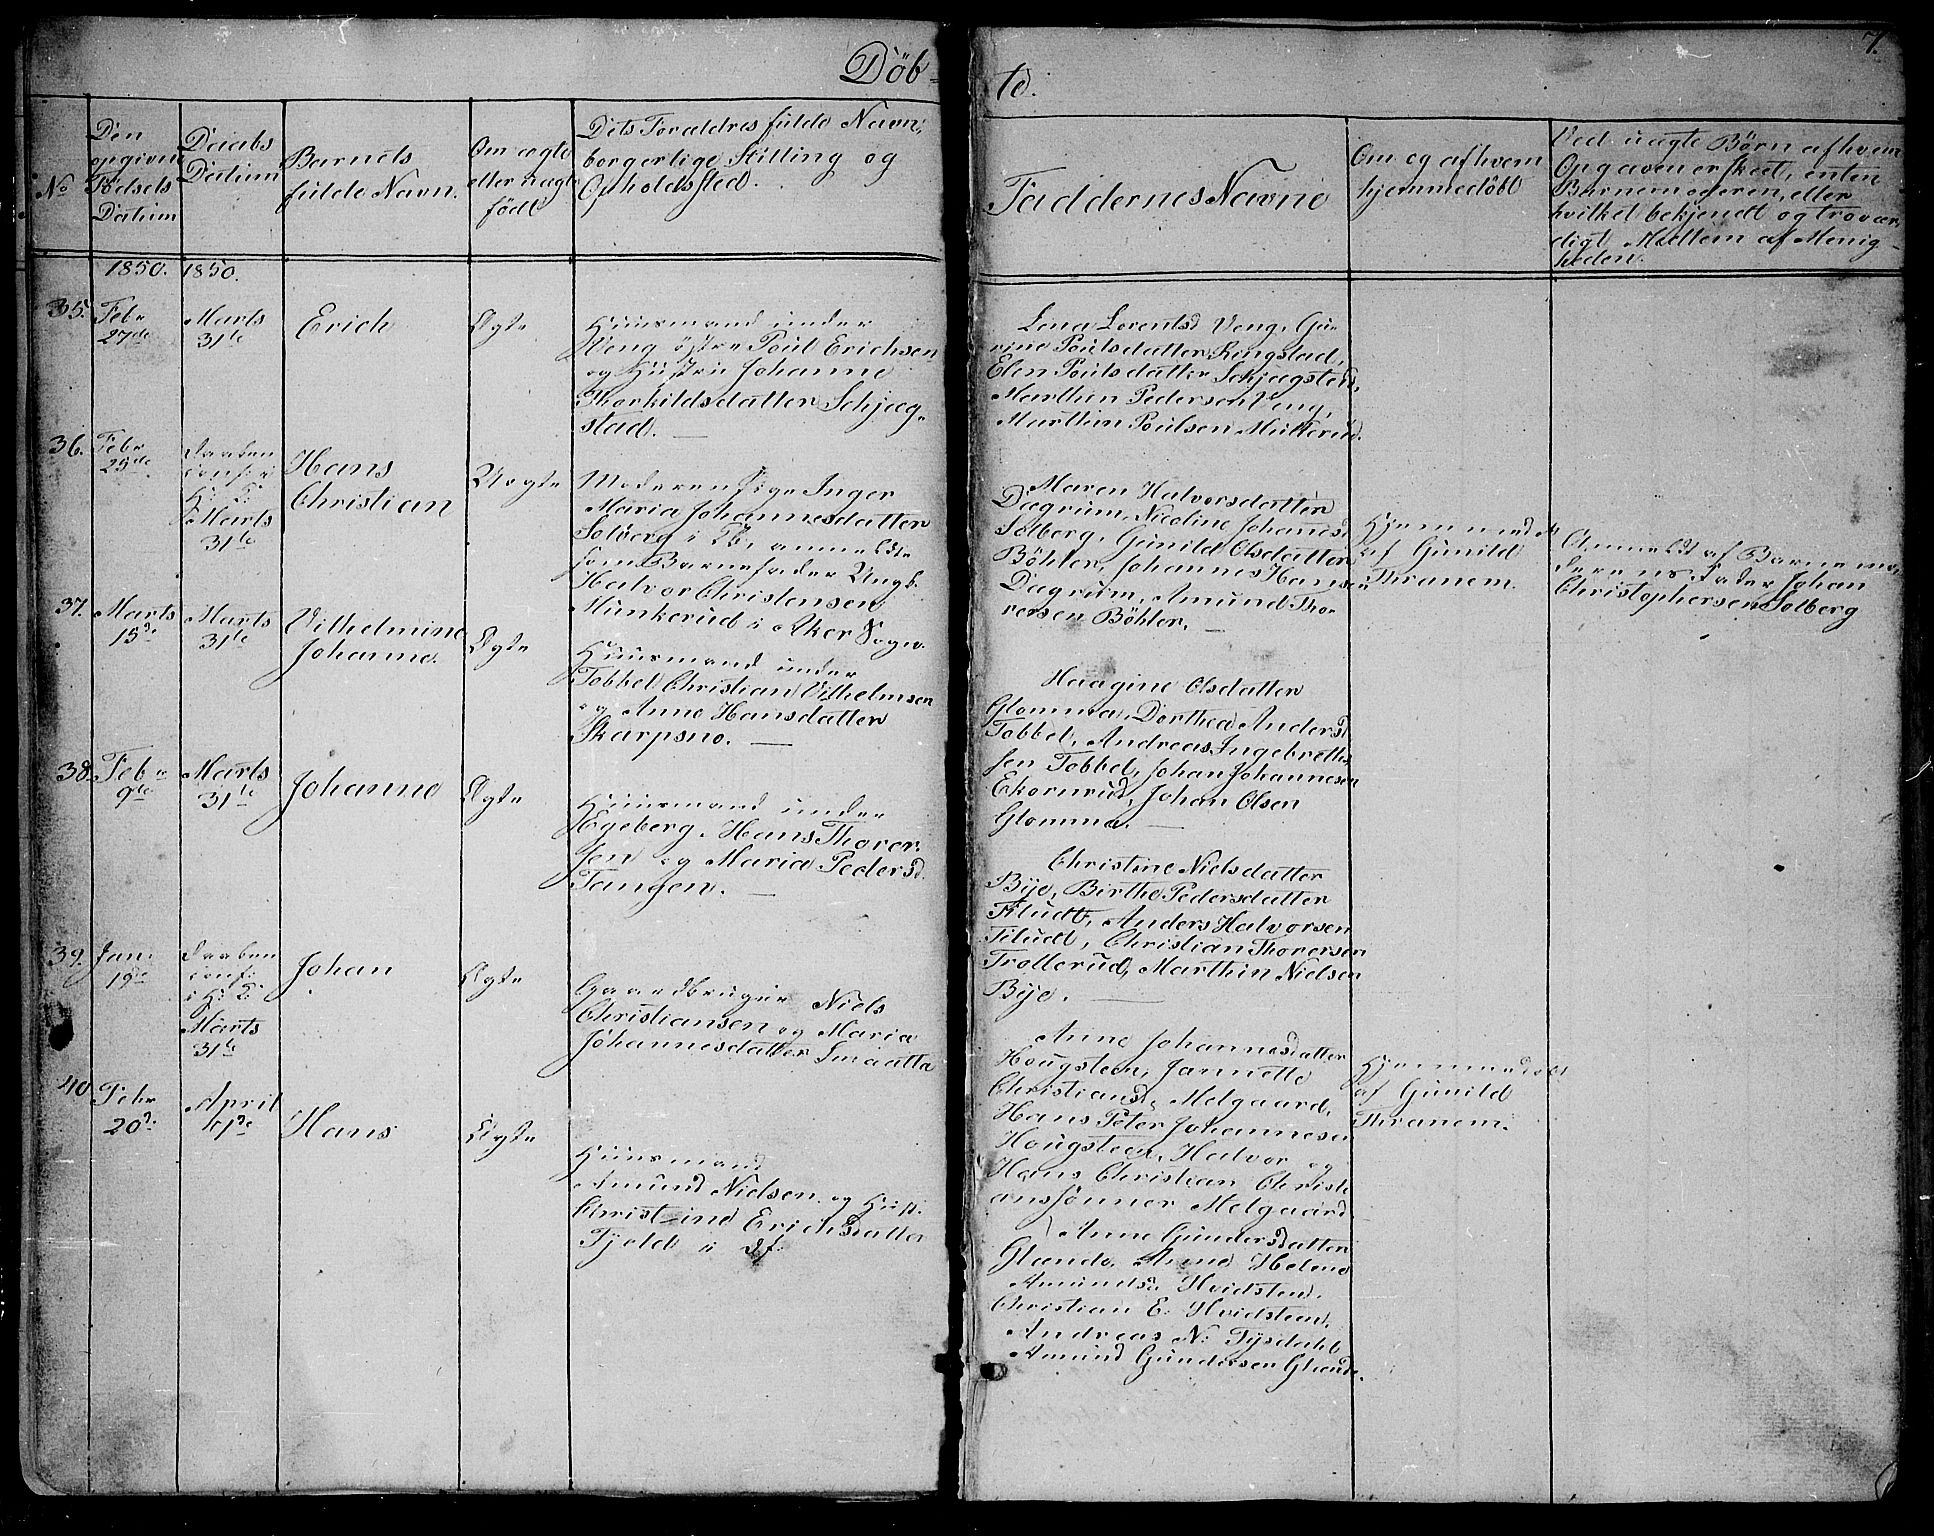 Döb-
te.
7.
No
Den opgivne Födsels Datum
Daabs Datum
Barnets fulde Navn.
Om ægte eller uægte födt
Dets Foraldres fulde Navn, borgerlige Stilling og Opholdssted.
Faddernes Navne
Om og af hvem hjemmedöbt
Ved uægte Börn af hvem
Opgaven er skeet, enten
Barnemoderen, eller
hvilket bekjendt og trovær-
digt Medlem af Menig-
heden.
1850. 1850.
35. Febr 27de
Marts 31te
Erich
Ægte
Huusmand under
Weng östre Poul Erichsen
og Hustru Johanne
Thorkildsdatter Schjæg-
stad.
Lena Lorentsd Veng, Gu-
rine Poulsdatter Ringstad,
Elen Poulsdatter Schjægstad,
Marthin Pedersen Veng,
Marthin Poulsen Mutterud.
36. Febr 25de
Daaben
conf: i
H: K:
Marts
31te
Hans
Christian
Uægte
Moderen Pige Inger
Maria Johannesdatter
Solberg i Kb, anmeldte
som Barnefader Ungk.
Halvor Christensen
Munkerud i Aker Sogn.
Maren Halvorsdatter
Dægrum, Nicoline Johannesd
Solberg, Gunild Olsdatter
Böhler, Johannes Hansen
Dægrum, Amund Tho-
resen Böhler.
Hjemmedöbt
af Gunild
Thranem.
Anmeldt af Barnemo-
derens Fader Johan
Christophersen Solberg
37. Marts 15de
Marts 31te
Vilhelmine
Johanne.
Ægte
Huusmand under
Tobbel Christian Vilhelmsen
og Anne Hansdatter
Skarpsno.
Haagine Olsdatter
Glomma, Dorthea Andersd
Tobbel, Andreas Ingebreth-
sen Tobbel, Johan Johannesen
Ekornrud, Johan Olsen
Glomma.
38. Febr 9de
Marts 31te
Johanne
Ægte
Huusmand under
Egeberg, Hans Thorer-
sen og Maria Pedersd
Tangen.
Christine Nielsdatter
Bye, Birthe Pedersdatter
Filudt, Anders Halvorsen
Filudt, Christian Thorersen
Trollerud, Marthin Nielsen
Bye.
39. Jan: 19de
Daaben
conf:
i H: K:
Marts
31te
Johan
Ægte
Gaardbruger Niels
Christiansen og Maria
Johannesdatter Smaatta
Anne Johannesdatter
Hougsteen, Jannette
Christiansd, Melgaard,
Hans Peter Johannesen
Hougsteen, Halvor og
Hans Christian Christi-
ansönner Melgaard
Hjemmedöbt
af Gunild
Thranem.
40 Febr 20de
April
Hans
Ægte
Huusmand
Amund Nielsen og Hust.
Christine Erichsdatter
Fjeld i
Anne Gundersdatter
Glende, Anne Helene
Amundsd Hvidsten,
Christian E. Hvidsteen,
Andreas N. Fysdahl
Amund Gundersen Glende.